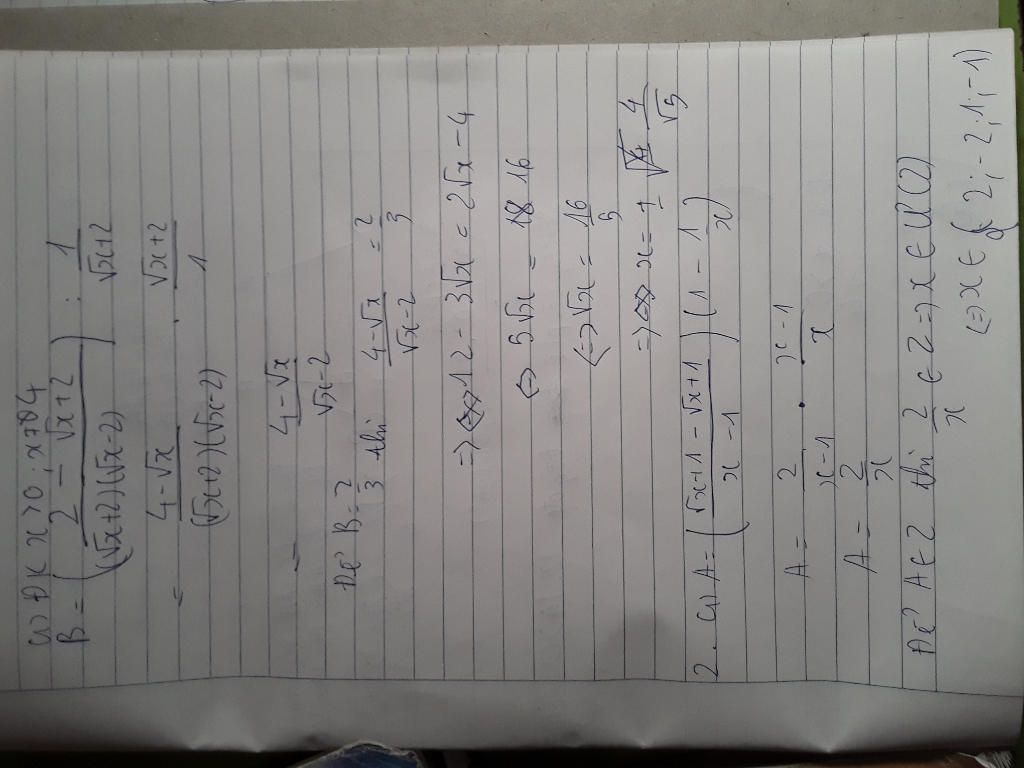 a) ĐK x > 0 ; x ≠ 4
B = ( (2 - √x + 2) / ((√x+2)(√x-2)) ) : 1/(√x+2)
= (4-√x) / ((√x+2)(√x-2)) . (√x+2)/1
= (4-√x)/(√x-2)
Để B = 2/3 thì (4-√x)/(√x-2) = 2/3
=> 12 - 3√x = 2√x - 4
<=> 5√x = 16
<=> √x = 16/5
=> x = 4/√5
2. a) A = ( (√x+1 - √x+1) / (x-1) ) (1 - 1/x)
A = 2/(x-1) . (x-1)/x
A = 2/x
Để A ∈ Z thì 2/x ∈ Z => x ∈ Ư(2)
(=) x ∈ { 2; -2; 1; -1)